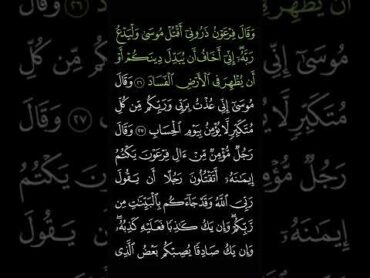 وَقَالَ فِرْعَوْنُ ذَرُونِىٓ أَقْتُلْ مُوسَىٰ وَلْيَدْعُ
رَبَّهُۥٓ ۖ إِنِّىٓ أَخَافُ أَن يُبَدِّلَ دِينَكُمْ أَوْ
أَن يُظْهِرَ فِى ٱلْأَرْضِ ٱلْفَسَادَ ٢٦ وَقَالَ
مُوسَىٰٓ إِنِّى عُذْتُ بِرَبِّى وَرَبِّكُم مِّن كُلِّ
مُتَكَبِّرٍ لَّا يُؤْمِنُ بِيَوْمِ ٱلْحِسَابِ ٢٧ وَقَالَ
رَجُلٌ مُّؤْمِنٌ مِّنْ ءَالِ فِرْعَوْنَ يَكْتُمُ
إِيمَٰنَهُۥٓ أَتَقْتُلُونَ رَجُلًا أَن يَقُولَ
رَبِّىَ ٱللَّهُ وَقَدْ جَآءَكُم بِٱلْبَيِّنَٰتِ مِن
رَّبِّكُمْ ۖ وَإِن يَكُ كَٰذِبًا فَعَلَيْهِ كَذِبُهُۥ ۖ
وَإِن يَكُ صَادِقًا يُصِبْكُم بَعْضُ ٱلَّذِى